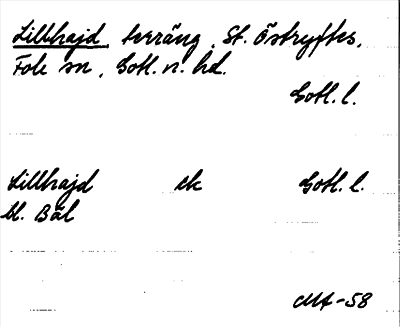 Lillhajd, terräng, St. Östryftes,
Fole sn, Gotl. n. hd.
Gotl. l.
Lillhajd ek Gotl. l.
bl. Bäl
-58